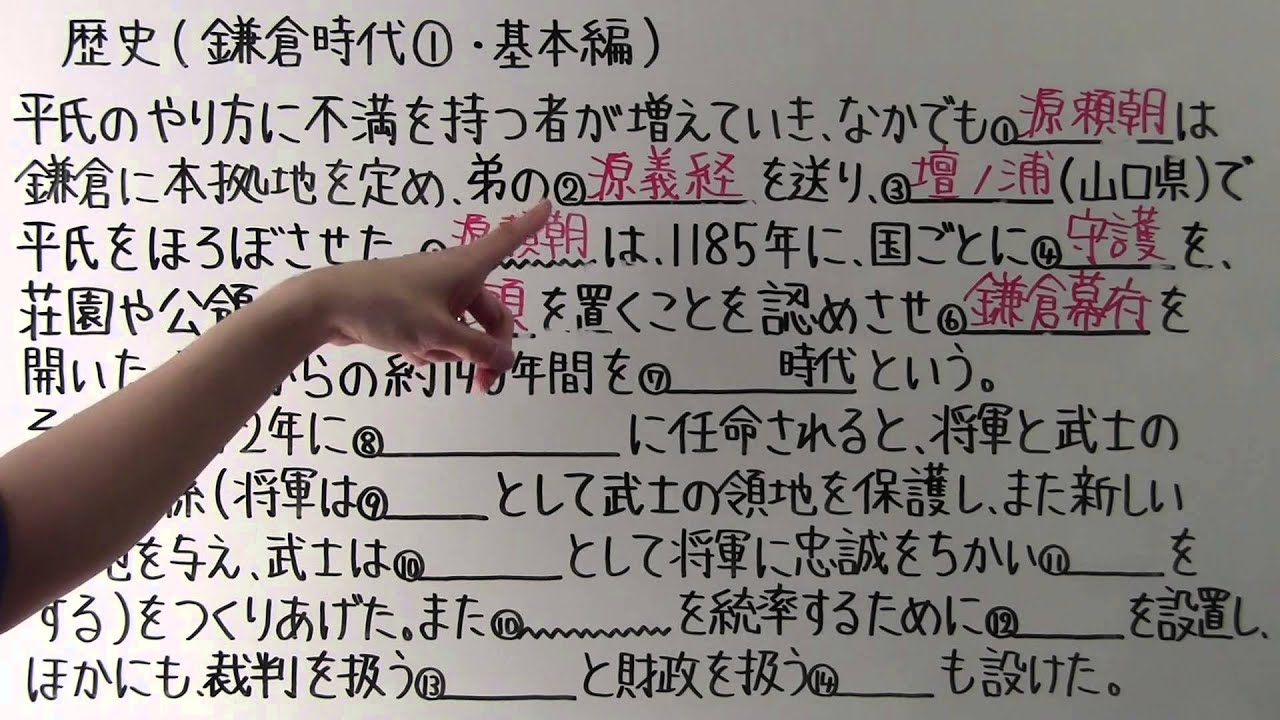 歴史(鎌倉時代①・基本編)
平氏のやり方に不満を持つ者が増えていき、なかでも①源頼朝は
鎌倉に本拠地を定め、弟の②源義経を送り、③壇ノ浦(山口県)で
平氏をほろぼさせた。源頼朝は、1185年に、国ごとに④守護を、
荘園や公領 頭を置くことを認めさせ⑥鎌倉幕府を
開いた からの約140年間を⑦ 時代という。
2年に⑧ に任命されると、将軍と武士の
(将軍は⑨ として武士の領地を保護し、また新しい
を与え、武士は⑩ として将軍に忠誠をちかい⑪ を
する)をつくりあげた。また⑩ を統率するために⑫ を設置し、
ほかにも、裁判を扱う⑬ と財政を扱う⑭ も設けた。